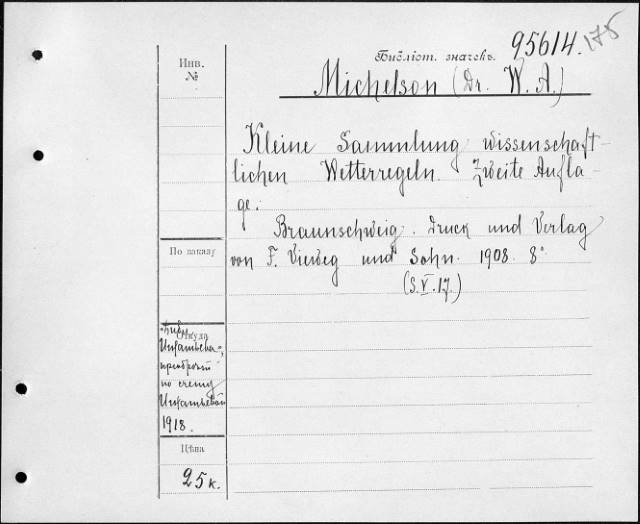 175
95614.
Инв.
№
Библіот. значекъ.
Michelson (Dr. W. A.)
Kleine Sammlung wissenschaft-
lichen Wetterregeln. Zweite Aufla-
ge.
Braunschweig. Druck und Verlag
von F. Vieweg und Sohn. 1908. 8°
(S. V. 17.)
По заказу
Откуда
по счету
1918.
Цѣна
25 к.